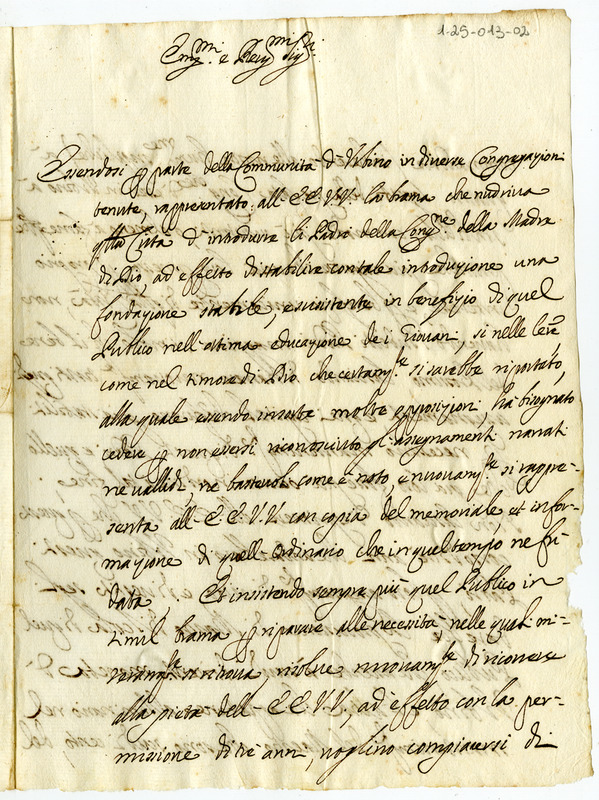 1-25-013-02
Em.mi e Rev.mi Sig.ri
Essendosi p parte della Communità d'Urbino in diverse Congregazioni
tenute, rappresentato all' E E V V la brama che nudriva
qlla Città d'introdurre li Padri della Cong.ne della Madre
di Dio, ad effetto di stabilire con tale introduzione una
fondazione stabile, e susistente in benefizio di quel
Publico nell'ottima educazione de i Giovani, si nelle lere
come nel timore di Dio che certam.te si sarebbe riportato,
alla quale essendo insorte molte opposizioni, hà bisognato
cedere p non eversi riconosciuto gl'assegnamenti narrati
ne vallidi, ne bastevoli come è noto, e nuovam.te si rappre-
senta all' E. E. V. V. con copia del memoriale, et infor-
mazione di quell'Ordinario che in quel tempo ne fù
data. Et insistendo sempre più quel Publico in
simil brama p riparare alle necessità nelle quali mi-
seram.te si ritrova risolve nuovam.te di ricorrere
alla pietà dell' E E V V, ad effetto con la per-
missione di trè anni, voglino compiacersi di